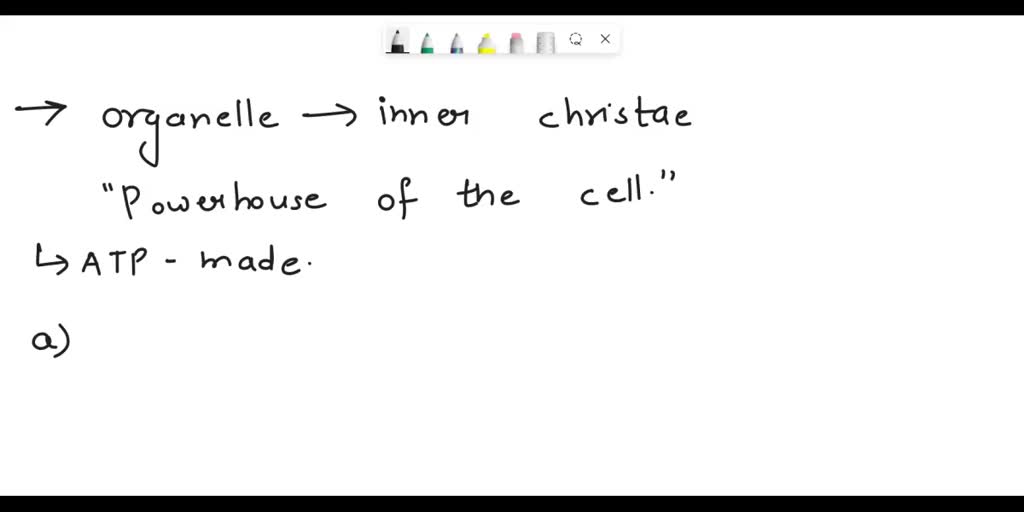 → organelle → inner christae
"Powerhouse of the cell."
↳ ATP - made.
a)